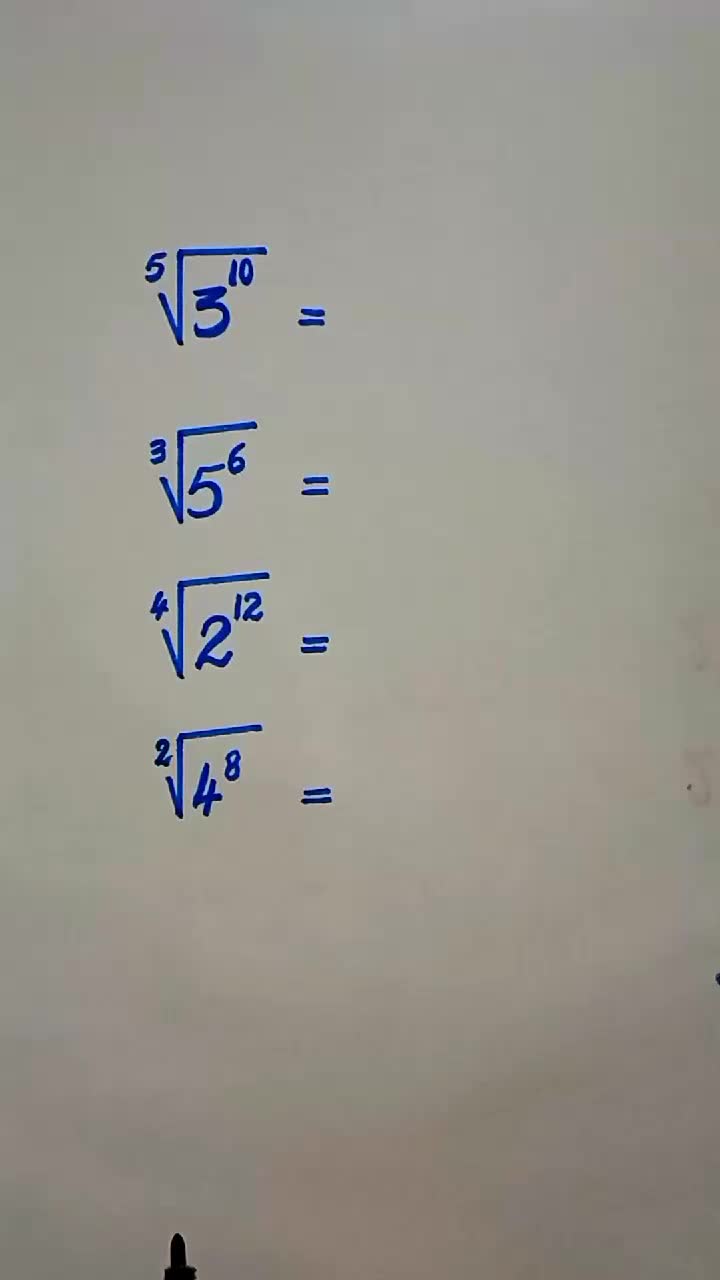 ⁵√3¹⁰ =
³√5⁶ =
⁴√2¹² =
²√4⁸ =